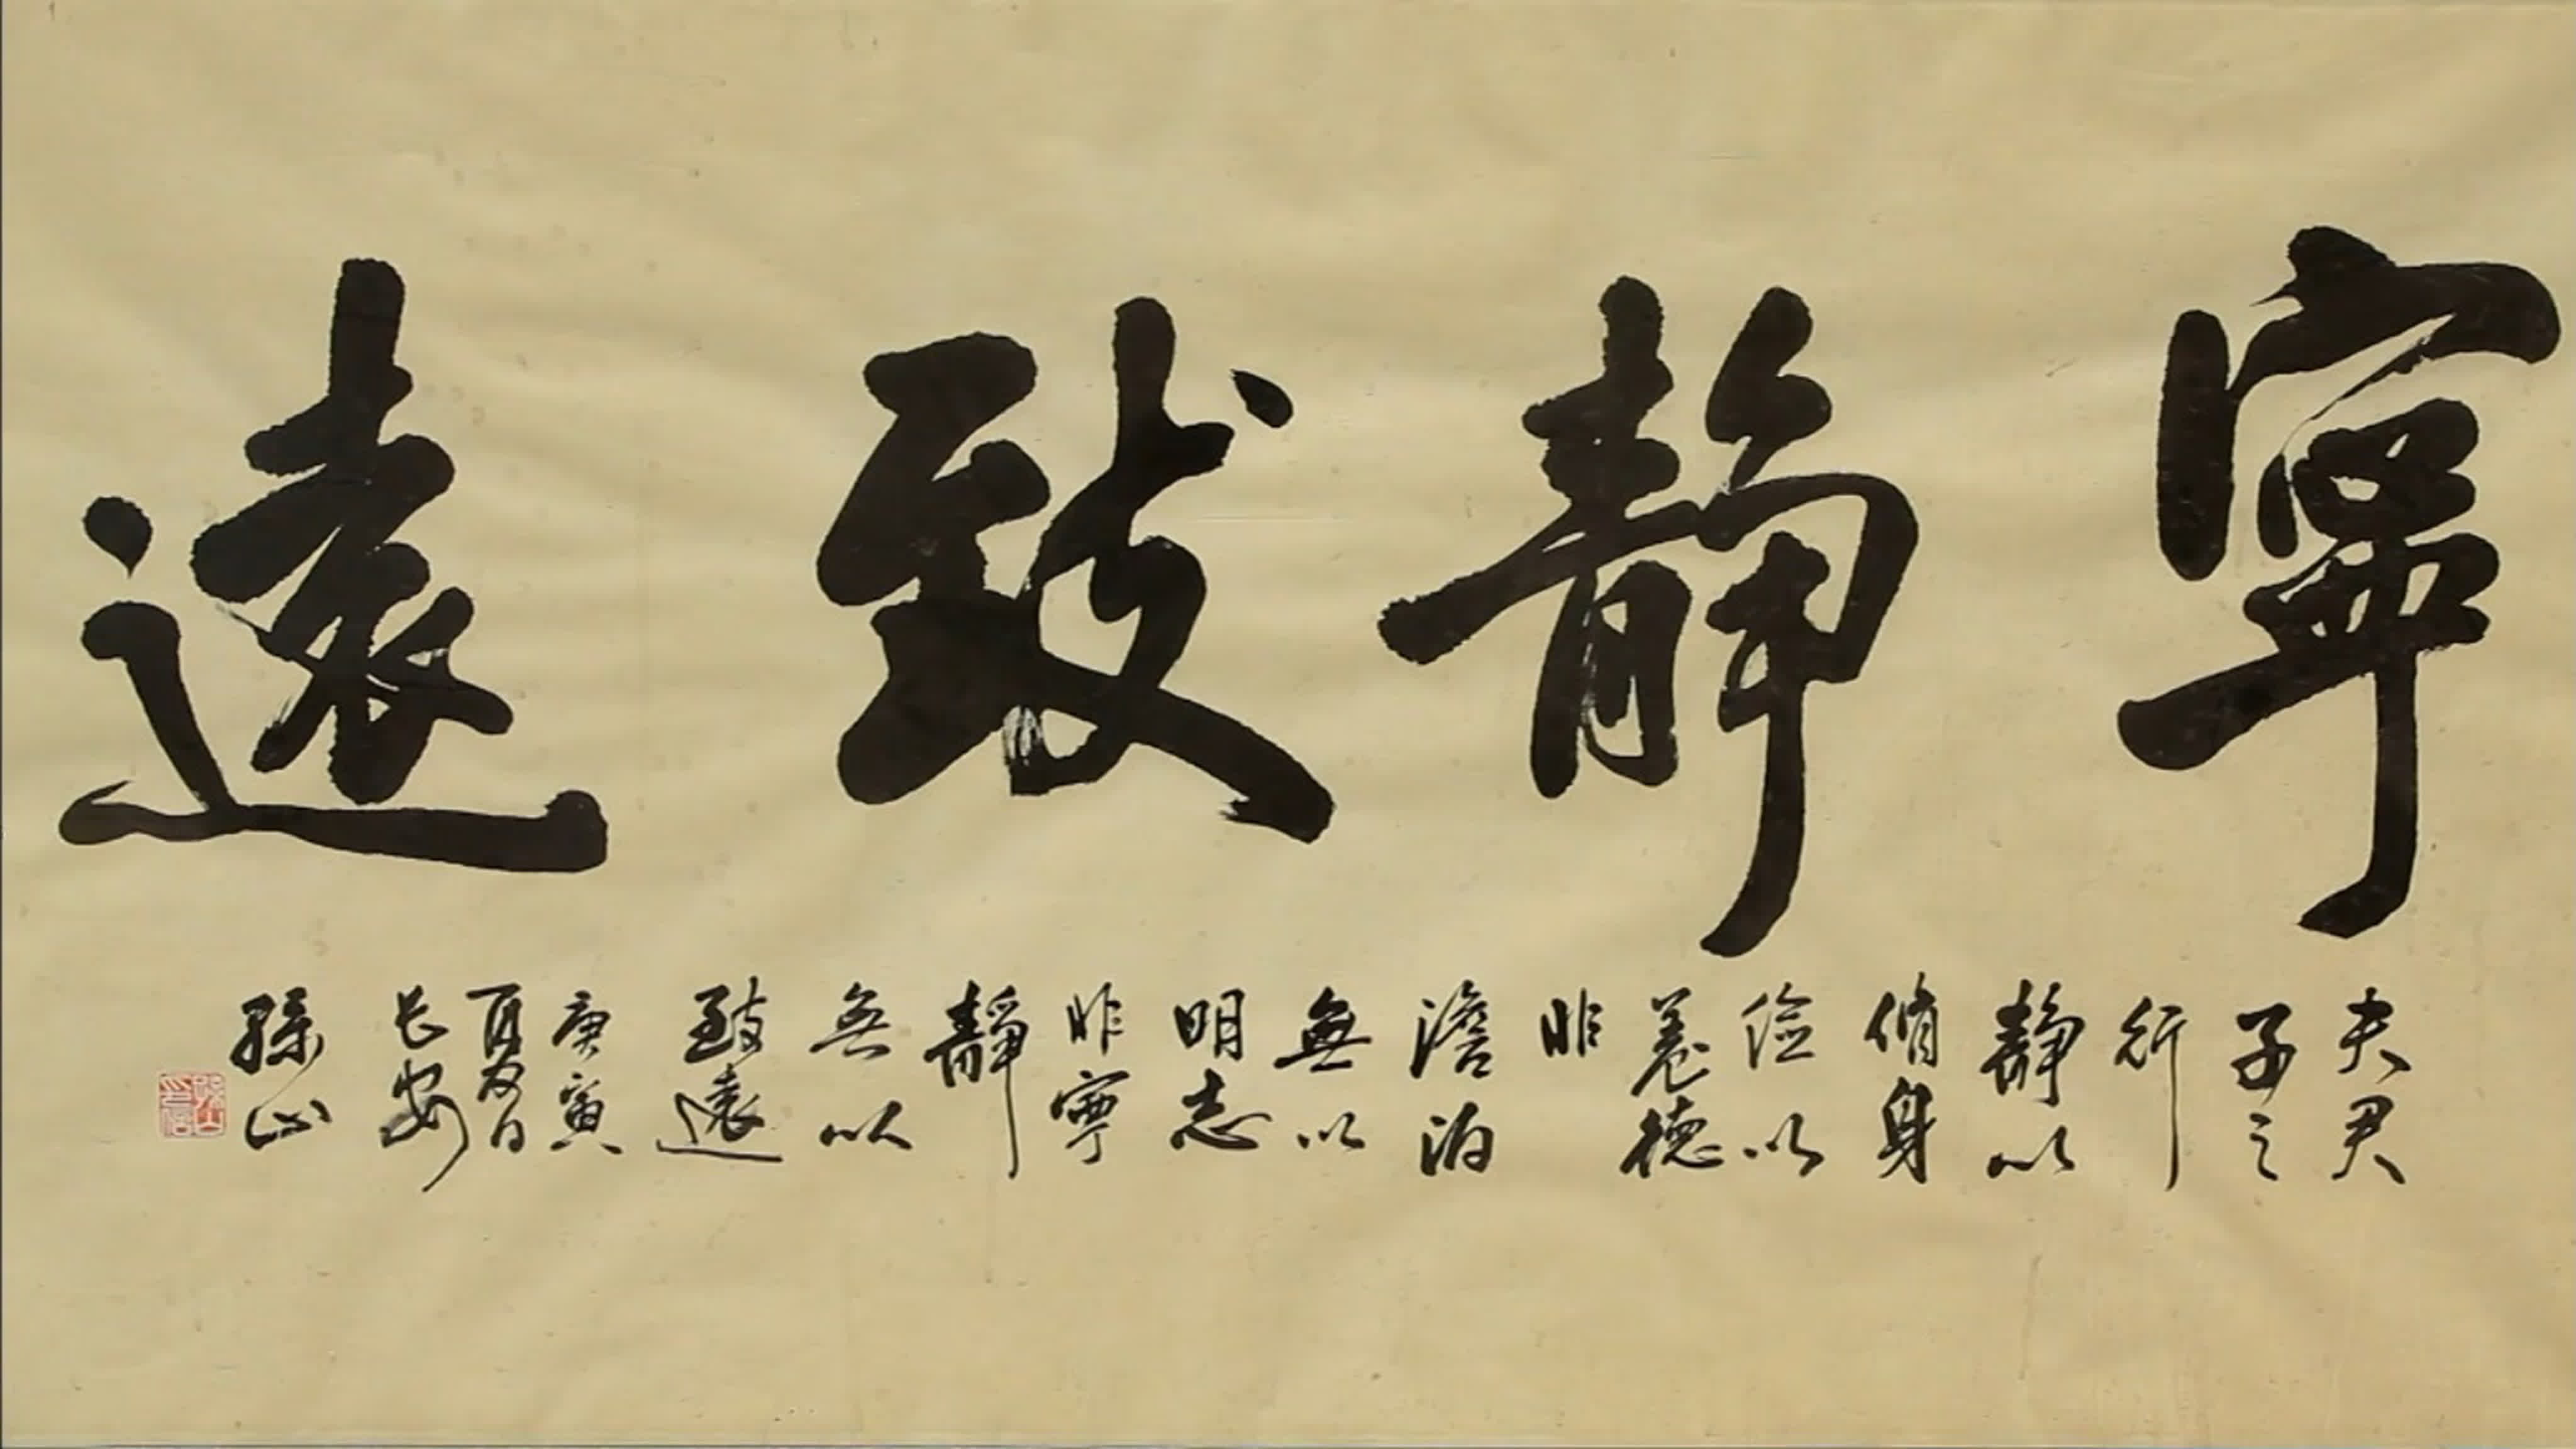 寧靜致遠
夫君
子之
行
靜以
脩身
儉以
養德
非
澹泊
無以
明志
非寧
靜
無以
致遠
庚寅
夏日
长安
孫山